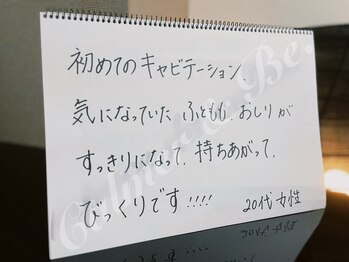 初めてのキャビテーション、
気になっていた ふともも、おしりが
すっきりになって、持ちあがって、
びっくりです!!!!
20代 女性